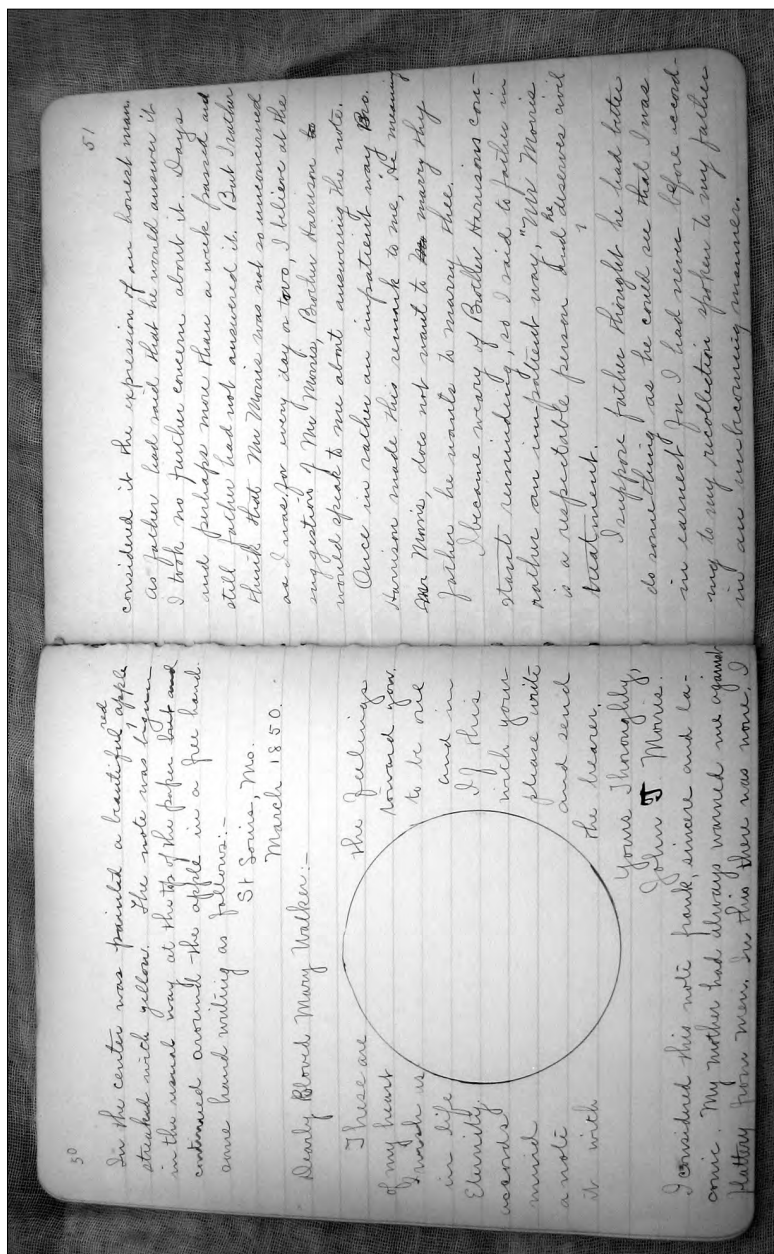 50
In the center was painted a beautiful red apple
streaked with yellow. The note was begun
in the usual way at the top of the paper but and
continued around the apple in a free hand.
some hand writing as follows:-
St Louis, Mo.
March 1850.
Dearly Beloved Mary Walker:-
These are the feelings
of my heart toward you.
I wish us to be one
in life and in
Eternity. If this
accords with your
mind please write
a note and send
it with the bearer.
Yours Thoroughly,
John T Morris.
I considered this note frank, sincere and la-
conic. My mother had always warned me against
flattery from men. In this there was none. I
51
considered it the expression of an honest man
as father had said that he would answer it
I took no further concern about it. Days
and perhaps more than a week passed and
still father had not answered it. But I rather
think that Mr Morris was not so unconcerned
as I was for every day or two, I believe at the
suggestion of Mr Morris, Brother Harrison to
would speak to me about answering the note.
Once in rather an impatient way Bro.
Harrison made this remark to me, He meaning
Mr Morris, does not want to marry thy
father he wants to marry thee.
I became weary of Brother Harrisons con-
stant reminding, so I said to father in
rather an impatient way, "Mr Morris
is a respectable person and he deserves civil
treatment.
I suppose father thought he had better
do something as he could see that I was
in earnest for I had never before accord-
ing to my recollection spoken to my father
in an unbecoming manner.